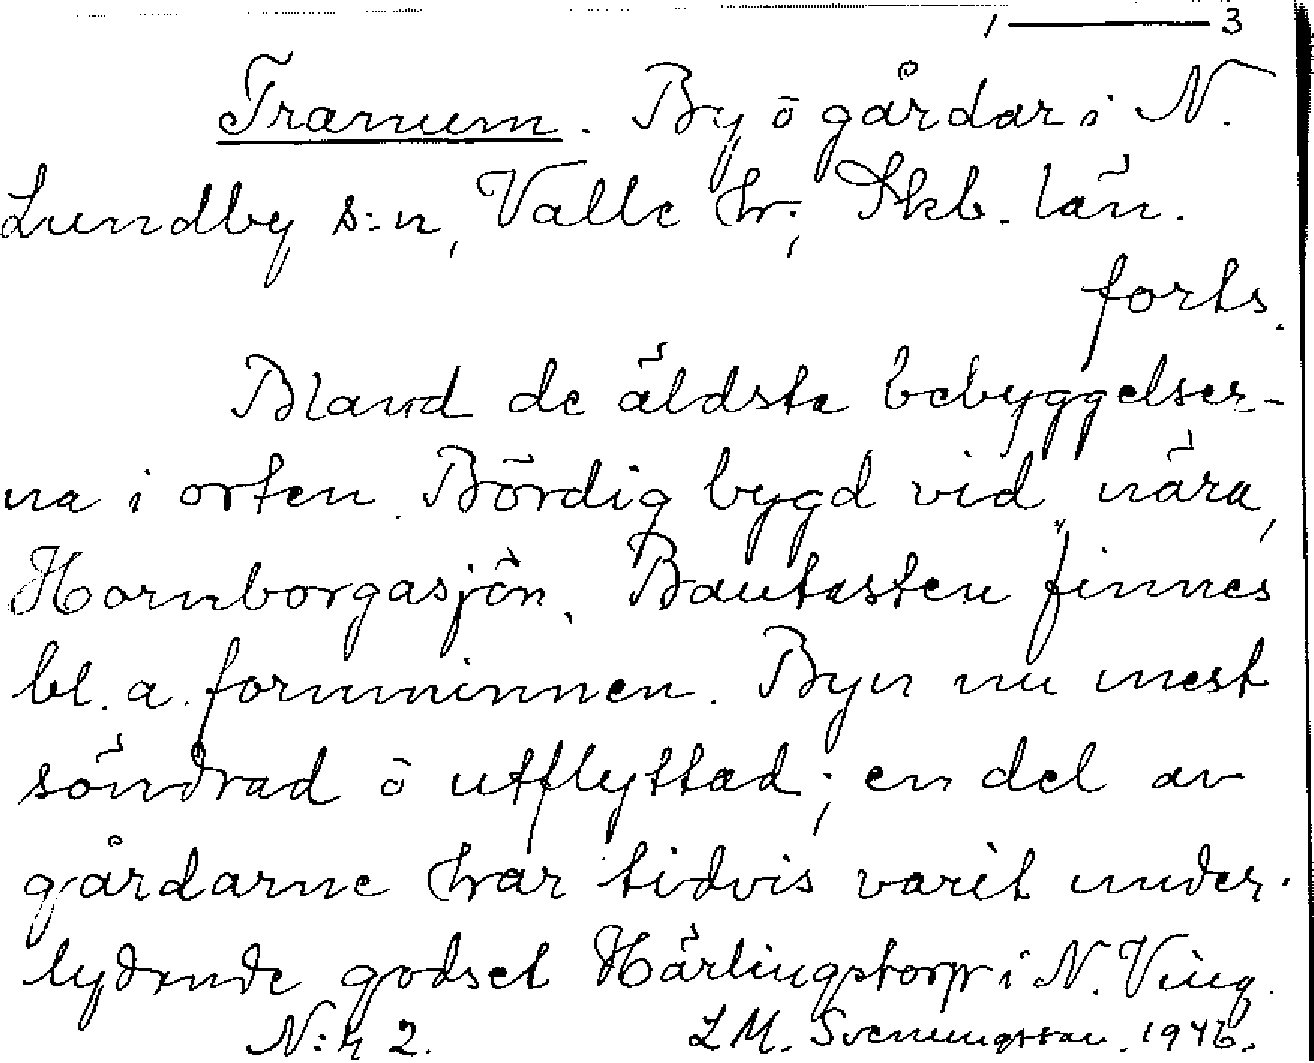 1 — 3
Tranum. By ō gårdar i N.
Lundby s:n, Valle hr; Skb. län.
forts.
Bland de äldsta bebyggelser-
na i orten. Bördig bygd vid, nära,
Hornborgasjön. Bautasten finnes
bl. a. fornminnen. Byn nu mest
söndrad ō utflyttad; en del av
gårdarne har tidvis varit under-
lydande godset Härlingstorp i N. Ving.
N:r 2. L M. Svenungsson. 1946.